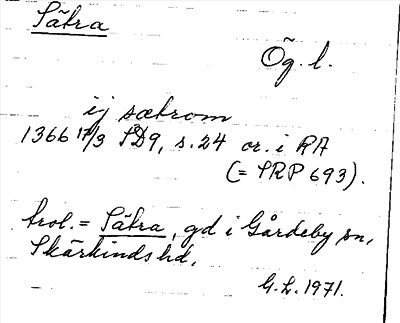 Sätra
Ög. l.
ij sætrom
1366 17/3 SD9, s. 24 or. i RA
(= SRP 693).
trol. = Sätra, gd i Gårdeby sn,
Skärkinds hd.
G. L. 1971.